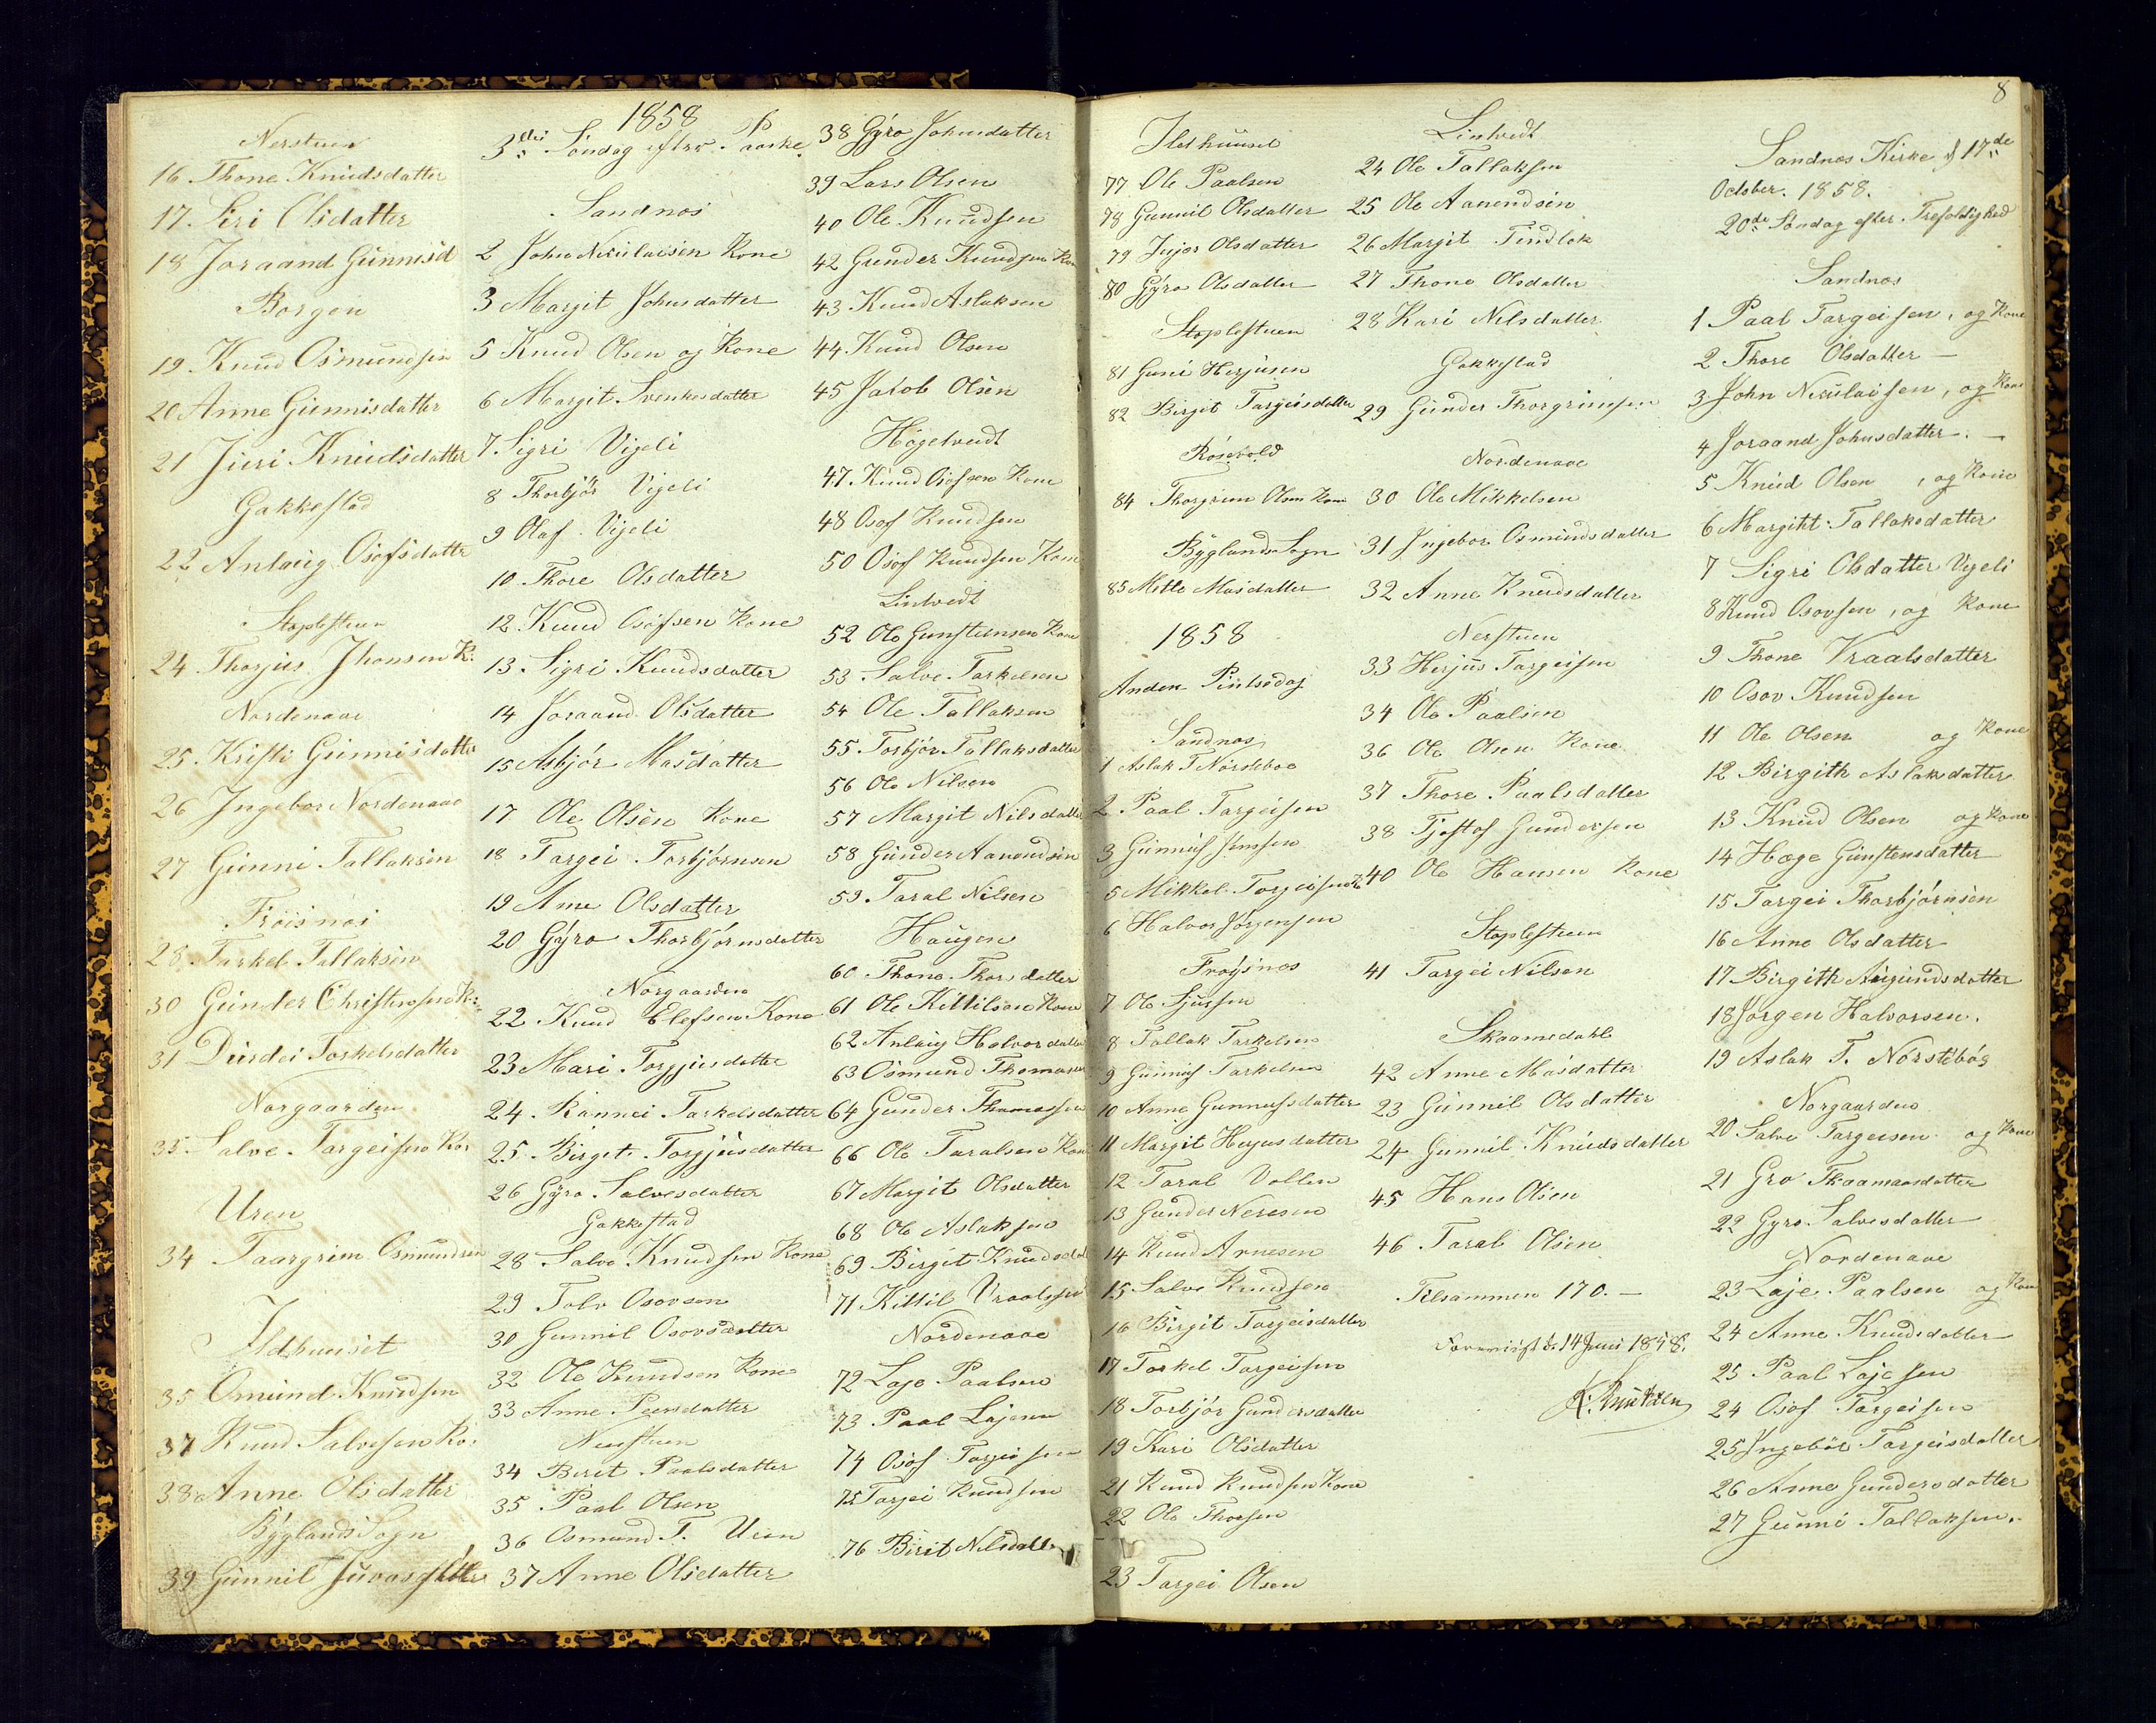 Nerstuen
16 Thone Knudsdatter
17. Siri Olsdatter
18 Joraand Gunnisd
Borgen
19 Knud Osmundsen
20 Anne Gunnisdatter
21 Juri Knudsdatter
Gakkestad
22 Anlaug Osofsdattr
Staplestuen
24 Thorjus Jhonsen K:
Nordenaae
25. Kristi Gunnisdatter
26 Ingebor Nordenaae
27 Gunni Tallaksen
Frøisnæs
28 Tarkel Tallaksen
30 Gunder Christensen K:
31 Durdei Torkelsdatter
Norgaarden
35. Salve Targeisen Ko:
Uren
34 Taargrim Osmundsen
Ildhuuset
35 Osmund Knudsen
37 Knud Salvesen Ko:
38 Anne Olsdatter
Byglands Sogn
39 Gunnil Juvasdatter
1858
3die Søndag efter Paaske
Sandnæs
2 John Niculaisen Kone
3 Margit Johnsdatter
5 Knud Olsen og Kone
6 Margit Svenkesdatter
7 Sigri Vigeli
8 Thorbjør Vigeli
9 Olaf Vigeli
10 Thore Olsdatter
12 Knud Osofsen Kone
13 Sigri Knudsdatter
14 Joraand Olsdatter
15 Asbjør Masdatter
17 Ole Olsen Kone
18 Targei Torbjørnsen
19 Ane Olsdatter
20 Gyro Thorbjørnsdatter
Norgaarden
22 Knud Elefsen Kone
23 Mari Torgjusdatter
24. Rannei Tarkelsdatter
25 Birget Torgjusdatter
26 Gyro Salvesdatter
Gakkestad
28 Salve Knudsen Kone
29 Tolv Osovsen
30 Gunnil Osovsdatter
32 Ole Knudsen Kone
33 Anne Peersdatter
Nerstuen
34 Berit Paalsdatter
35 Paal Olsen
36 Osmund T. Uren
37 Anne Olsdatter
38 Gyro Johnsdatter
39 Lars Olsen
40 Ole Knudsen
42 Gunder Knudsen Kone
43 Knud Aslaksen
44 Knud Olsen
45 Jakob Olsen
Høgetveidt
47 Knud Osofsen Kone
48 Osof Knudsen
50 Osof Knudsen Kone
Lintvedt
52 Ole Gunstensen Kone
53 Salve Tarkelsen
54 Ole Tallaksen
55 Torbjør Tallaksdatter
56 Ole Nilsen
57 Margit Nilsdatter
58 Gunder Aanendsen
59 Taral Nilsen
Haugen
60 Thone Thorsdatter
61 Ole Kittilsen Kone
62 Anlaug Halvorsdatter
63 Osmund Thomasen
64 Gunder Thomassen
66 Ole Taralsen Kone
67 Margit Olsdatter
68 Ole Aslaksen
69 Birgit Knudsdat
71 Kittil Vraalsen
Nordenaae
72 Laje Paalsen
73 Paal Lajesen
74 Osof Targeisen
75 Targei Knudsen
76 Birit Nelsdatter
Ildshuuset
77 Ole Paalsen
78 Gunnil Olsdatter
79 Jujer Olsdatter
80 Gyro Olsdatter
Staplestuen
81 Guni Herjusen
82 Birgit Targeisdatter
Rosevold
84 Thorgrim Olsen Kone
Byglands Sogn
85 Mette Masdatter
1858
Anden Pintsedag
Sandnæs
1 Aslak T Nørstebøe
2 Paal Targeisen
3 Gunnuf Jonsen
5 Mikkel Torjeisen Ko
6 Halvor Jørgensen
Frøysnæs
7 Ole Sjursen
8 Tallak Tarkelsen
9 Gunnuf Tarkelsen
10 Anne Gunnufsdatter
11 Margit Herjusdatter
12 Taral Vollen
13 Gunder Neresen
14 Knud Arnesen
15 Salve Knudsen
16 Birgit Targeisdatter
17 Torkel Targeisen
18 Torbjør Gundersdatter
19 Kari Olsdatter
21 Knud Knudsen Kone
22 Ole Thorsen
23 Targei Olsen
Lintvedt
24 Ole Tallaksen
25 Ole Aanendsen
26 Margit Tindlek
27 Thone Olsdatter
28 Kari Nilsdatter
Gakkestad
29 Gunder Thorgrimsen
Nordenaae
30 Ole Mikkelsen
31 Ingebor Osmundsdatter
32 Anne Knudsdatter
Nerstuen
33 Herjus Targeisen
34 Ole Paalsen
36 Ole Olsen Kone
37 Thore Paalsdatter
38 Tjostof Gundersen
40 Ole Hansen Kone
Staplestuen
41 Targei Nilsen
Skaamedahl
42 Anne Masdatter
23 Gunnil Olsdatter
24 Gunnil Knudsdatter
45 Hans Olsen
46 Taral Olsen
Tilsammen 170. —
Foreviist d. 14 Juni 1858.
K. Knutzen
8
Sandnæs Kirke d 17de
October. 1858.
20de Søndag efter Trefoldighed
Sandnæs
1 Paal Targeisen, og Kone
2 Thore Olsdatter —
3 John Niculaisen, og Kone
4 Joraand Johnsdatter. —
5 Knud Olsen , og Kone
6 Margitt Tallaksdatter
7 Sigri Olsdatter Vigeli
8 Knud Osovsen, og Kone
9 Thone Vraalsdatter
10 Osov Knudsen
11 Ole Olsen og Kone
12 Birgith Aslaksdatter
13 Knud Olsen og Kone
14 Hæge Gunstensdatter
15 Targei Thorbjørnsen
16 Anne Olsdatter
17 Birgith Augundsdatter
18 Jørgen Halvorsen.
19 Aslak T. Nørstebøe
Norgaarden
20 Salve Targeisen og Kone
21 Gro Skaamaasdatter
22 Gyro Salvesdatter
Nordenaae
23 Laje Paalsen og Kone
24 Anne Knudsdatter
25 Paal Lajesen
24 Osof Targeisen
25 Ingebor Targeisdatter
26 Anne Gundersdatter
27 Gunni Tallaksen.